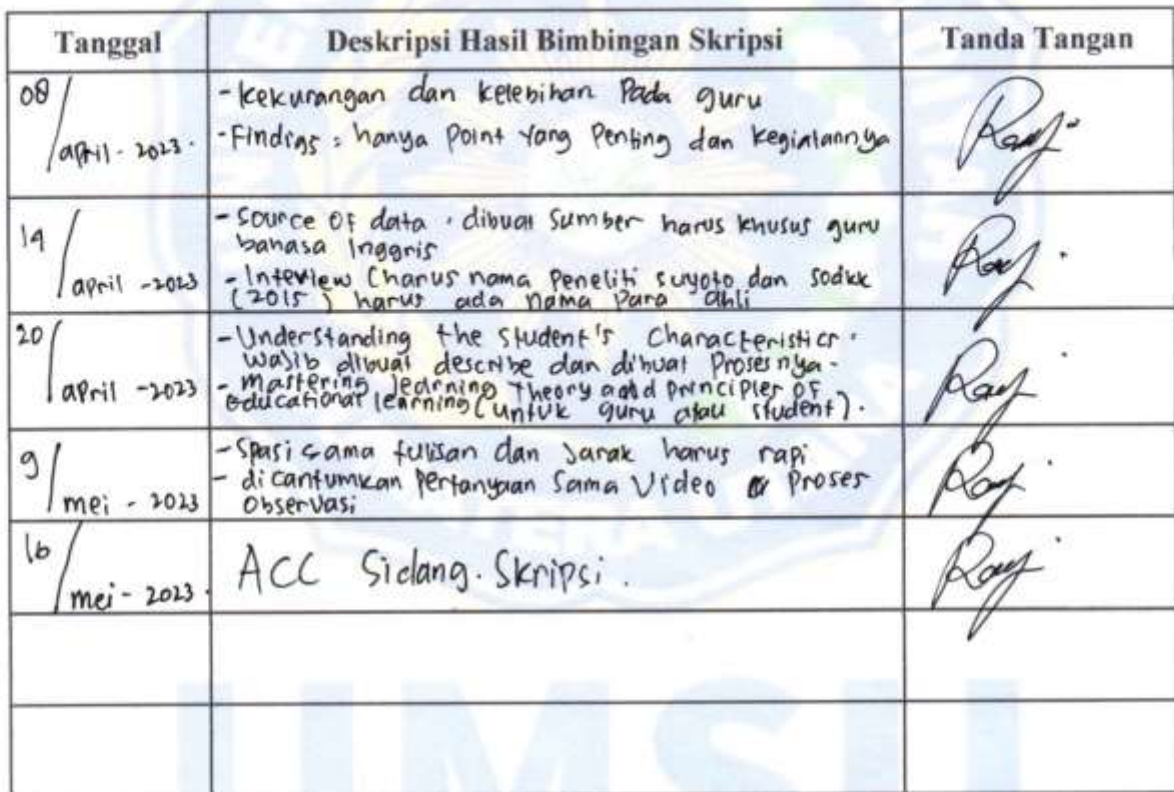 Tanggal Deskripsi Hasil Bimbingan Skripsi Tanda Tangan
08/april-2023.
- Kekurangan dan kelebihan Pada guru
- Findigs : hanya Point Yang Penting dan kegiatannya
14/april-2023
- Source of data . dibuat Sumber harus khusus guru
bahasa Inggris
- Interview (harus nama Peneliti suyoto dan sodikk
(2015) harus ada nama Para ahli
20/april-2023
- Understanding the student's Characteristics.
wajib dibuat describe dan dibuat Prosesnya.
- mastering learning Theory and principles of
educational learning (untuk guru atau student).
9/mei-2023
- Spasi sama tulisan dan Jarak harus rapi
- dicantumkan Pertanyaan Sama Video Proses
Observasi
16/mei-2023.
ACC Sidang. Skripsi.
UMSU